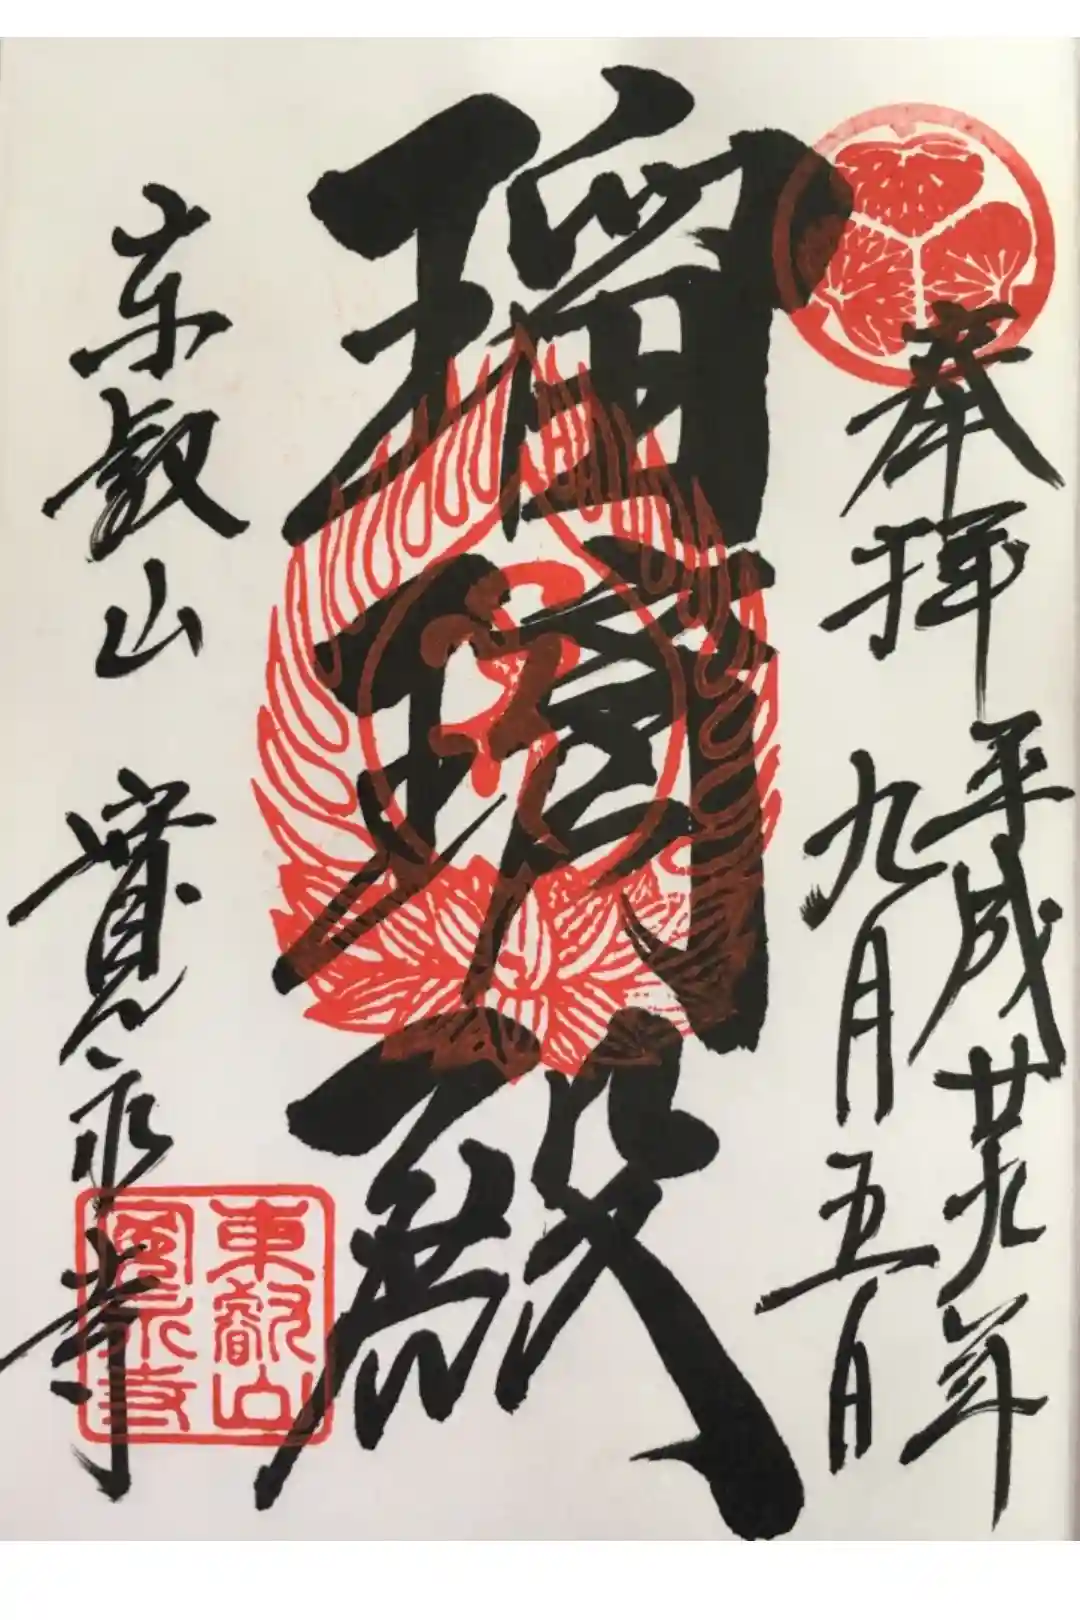 奉拝
平成廿九年
九月五日
瑠璃殿
東叡山 寛永寺
東叡山
寛永寺